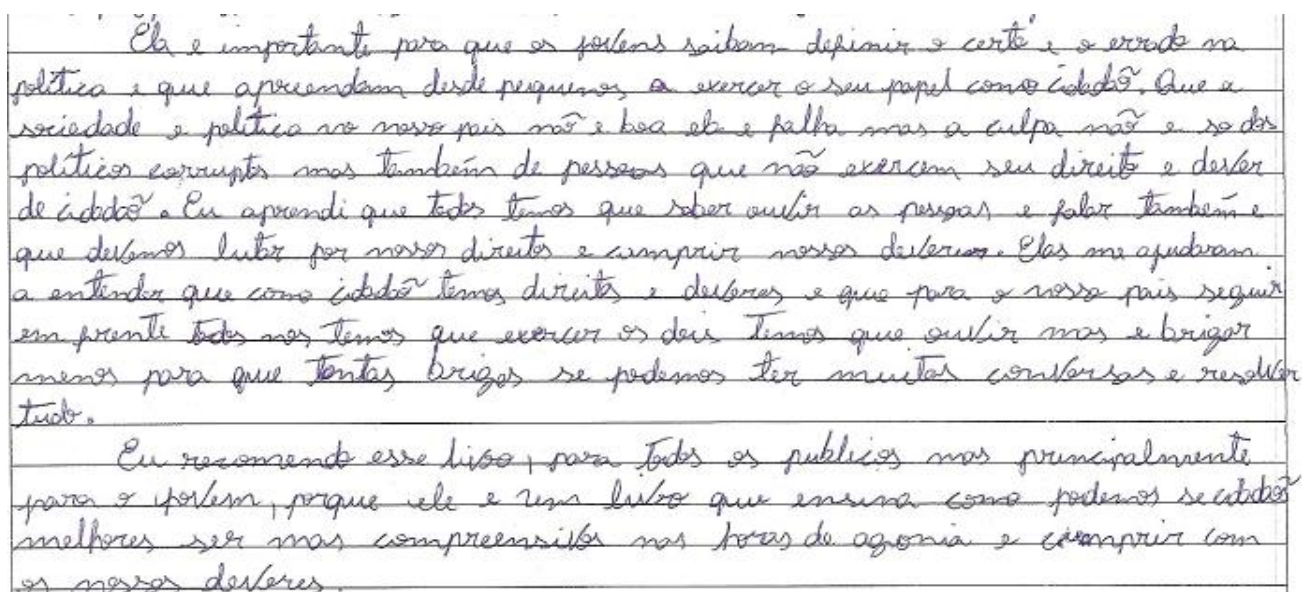 Ela e importante para que os jovens saibam definir o certo e o errado na
política e que apreendam desde pequenos a exercer o seu papel como cidadão. Que a
sociedade e politica no nosso pais não e boa ela e falha mas a culpa não e so dos
políticos corruptos mas também de pessoas que não exercem seu direito e dever
de cidadão. Eu aprendi que todos temos que saber ouvir as pessoas e falar também e
que devemos lutar por nossos direitos e cumprir nossos deveres. Elas me ajudaram
a entender que como cidadão temos direitos e deveres e que para o nosso pais seguir
em frente todos nos temos que exercer os dois temos que ouvir mas e brigar
menos para que tantas brigas se podemos ter muitas conversas e resolver
tudo.
Eu recomendo esse livro, para todos os publicos mas principalmente
para o jovem, porque ele e um livro que ensina como podemos se cidadão
melhores ser mas compreensivos nas horas de agonia e cumprir com
os nossos deveres.